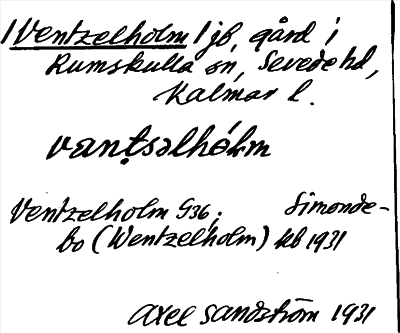 /Ventzelholm/ jb, gård i
Rumskulla sn, Sevede hd,
Kalmar l.
vanṭsəlhólm
Ventzelholm G36; Simonde-
bo (Wentzelholm) kb 1931
Axel Sandström 1931